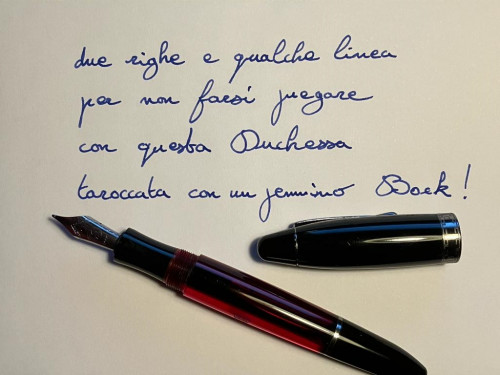 due righe e qualche linea
per non farsi pregare
con questa Duchessa
taroccata con un pennino Bock!